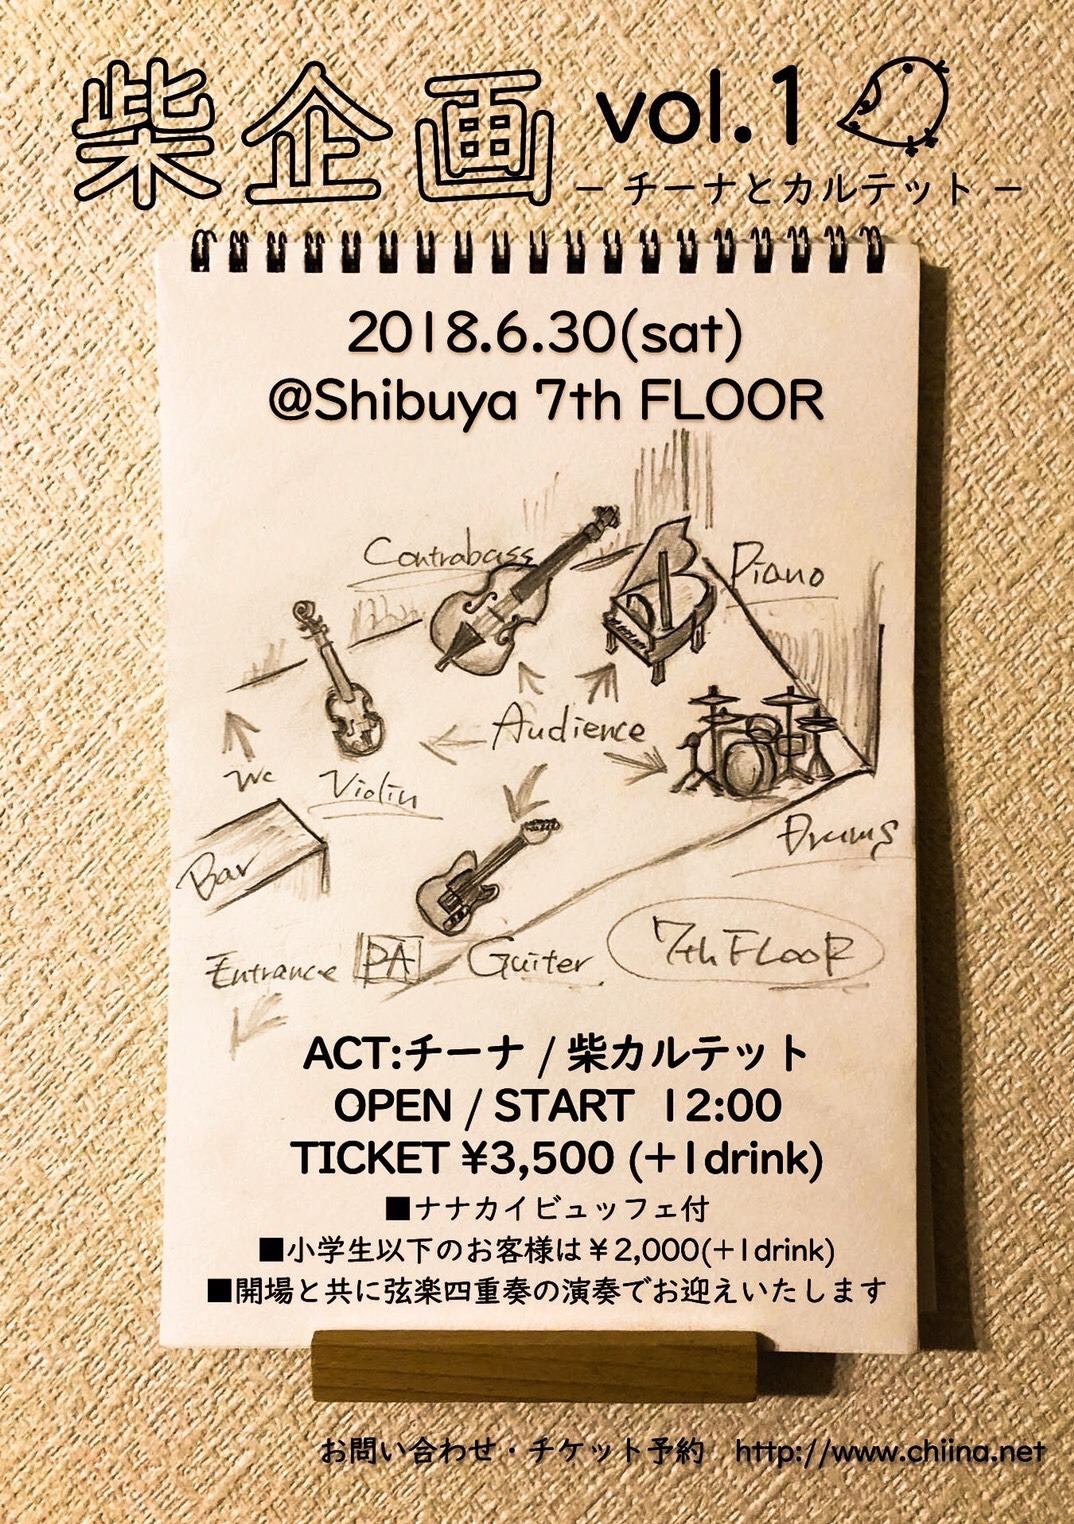 柴企画 vol.1
― チーナとカルテット ―
2018.6.30(sat)
@Shibuya 7th FLOOR
Contrabass
Piano
Audience
Wc
Violin
Drums
Bar
Entrance
PA
Guiter
7th FLooR
ACT:チーナ / 柴カルテット
OPEN / START 12:00
TICKET ¥3,500 (+1drink)
■ナナカイビュッフェ付
■小学生以下のお客様は¥2,000(+1drink)
■開場と共に弦楽四重奏の演奏でお迎えいたします
お問い合わせ・チケット予約 http://www.chiina.net